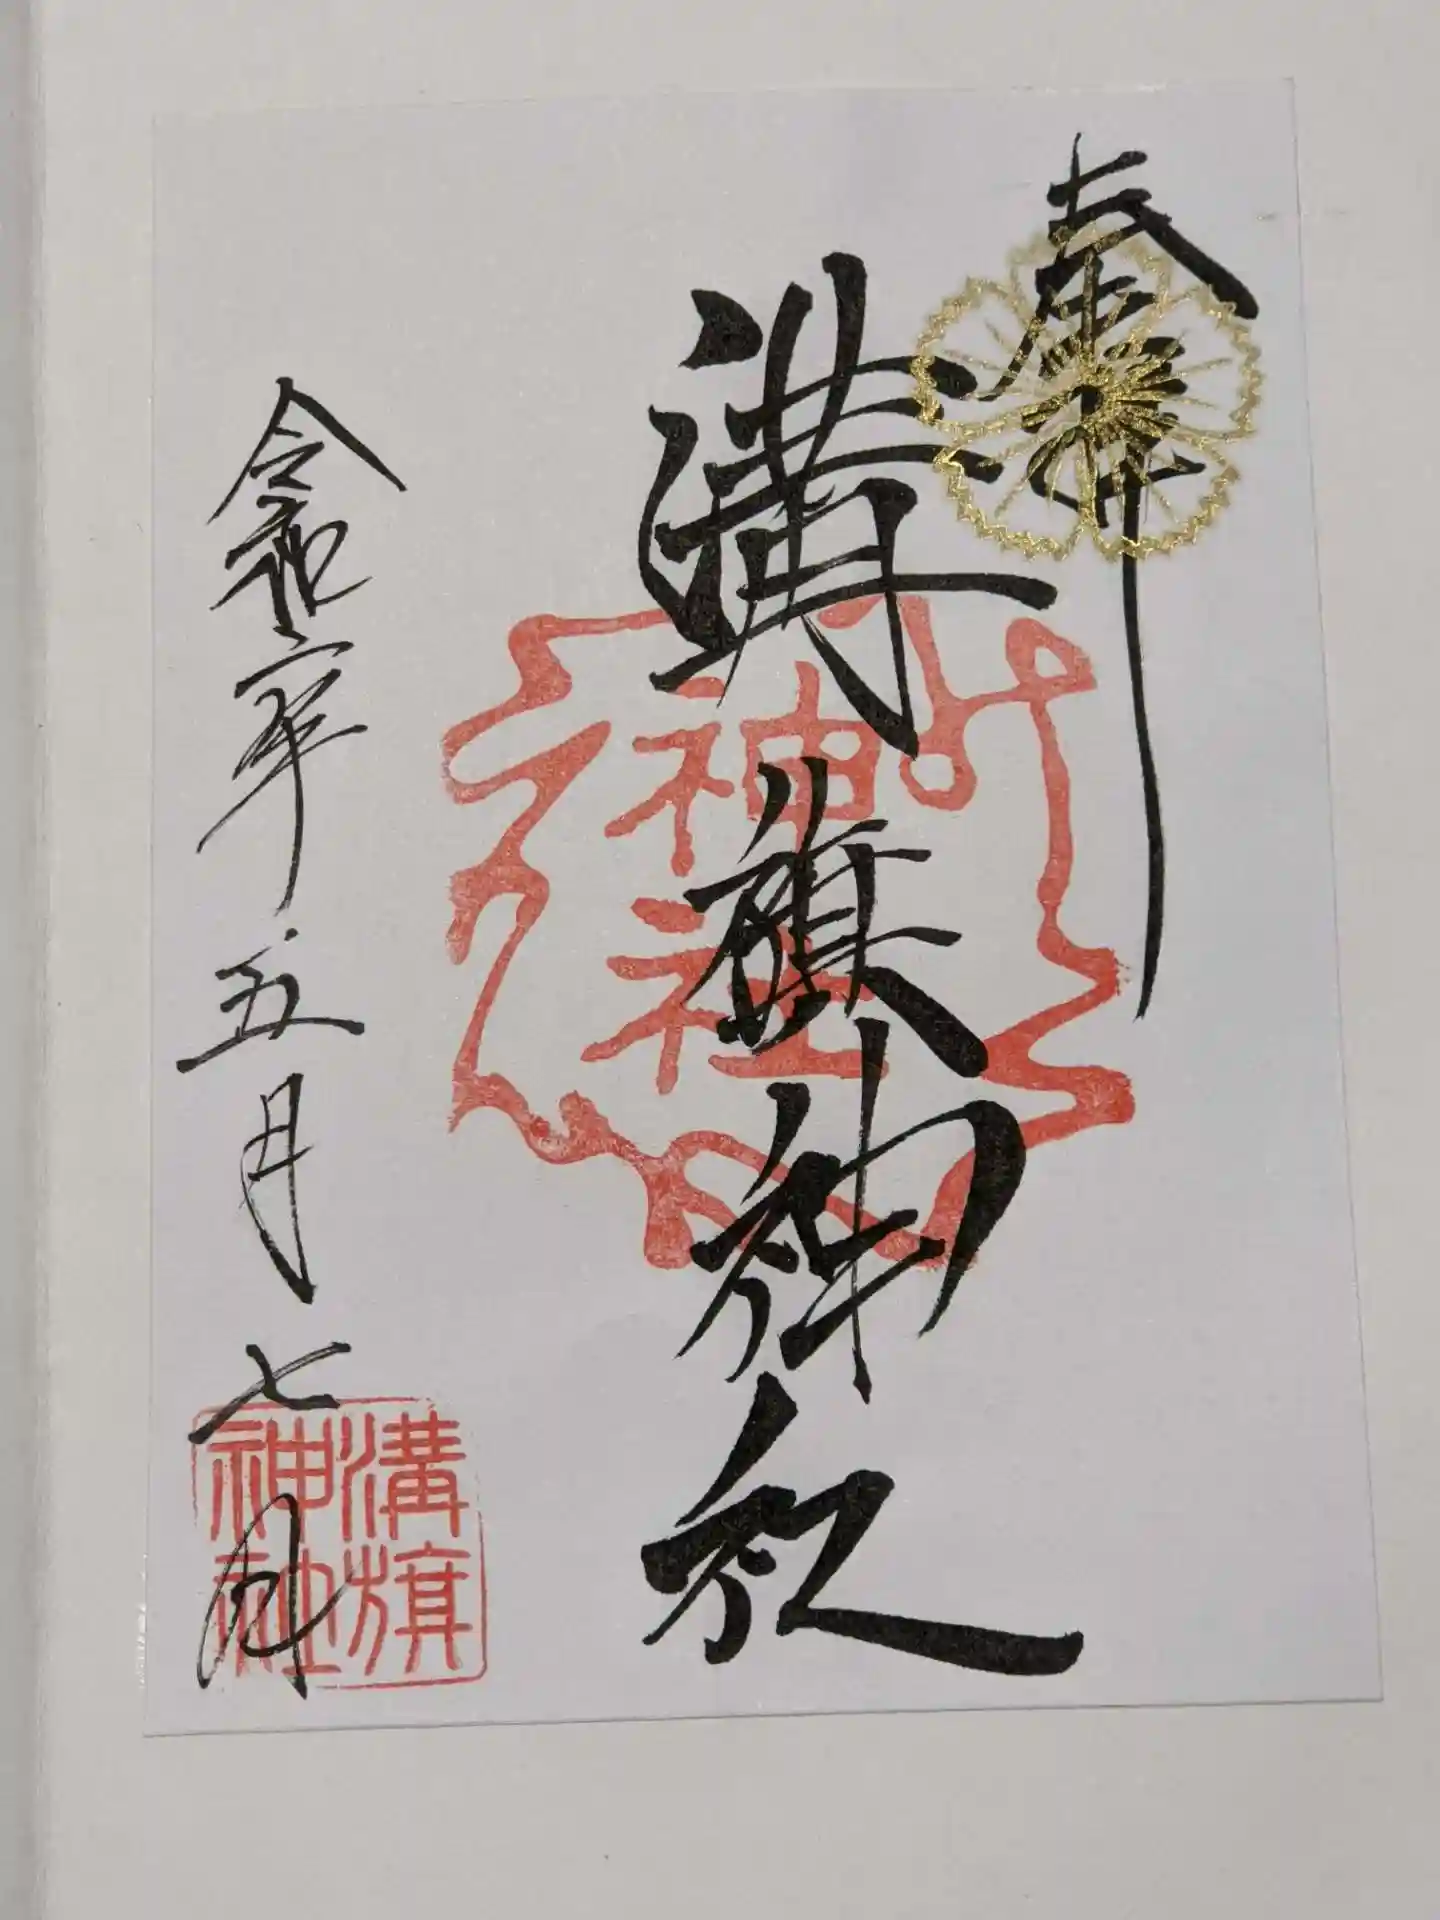 奉拝
溝旗神社
神社
令和元年五月七日
溝旗
神社